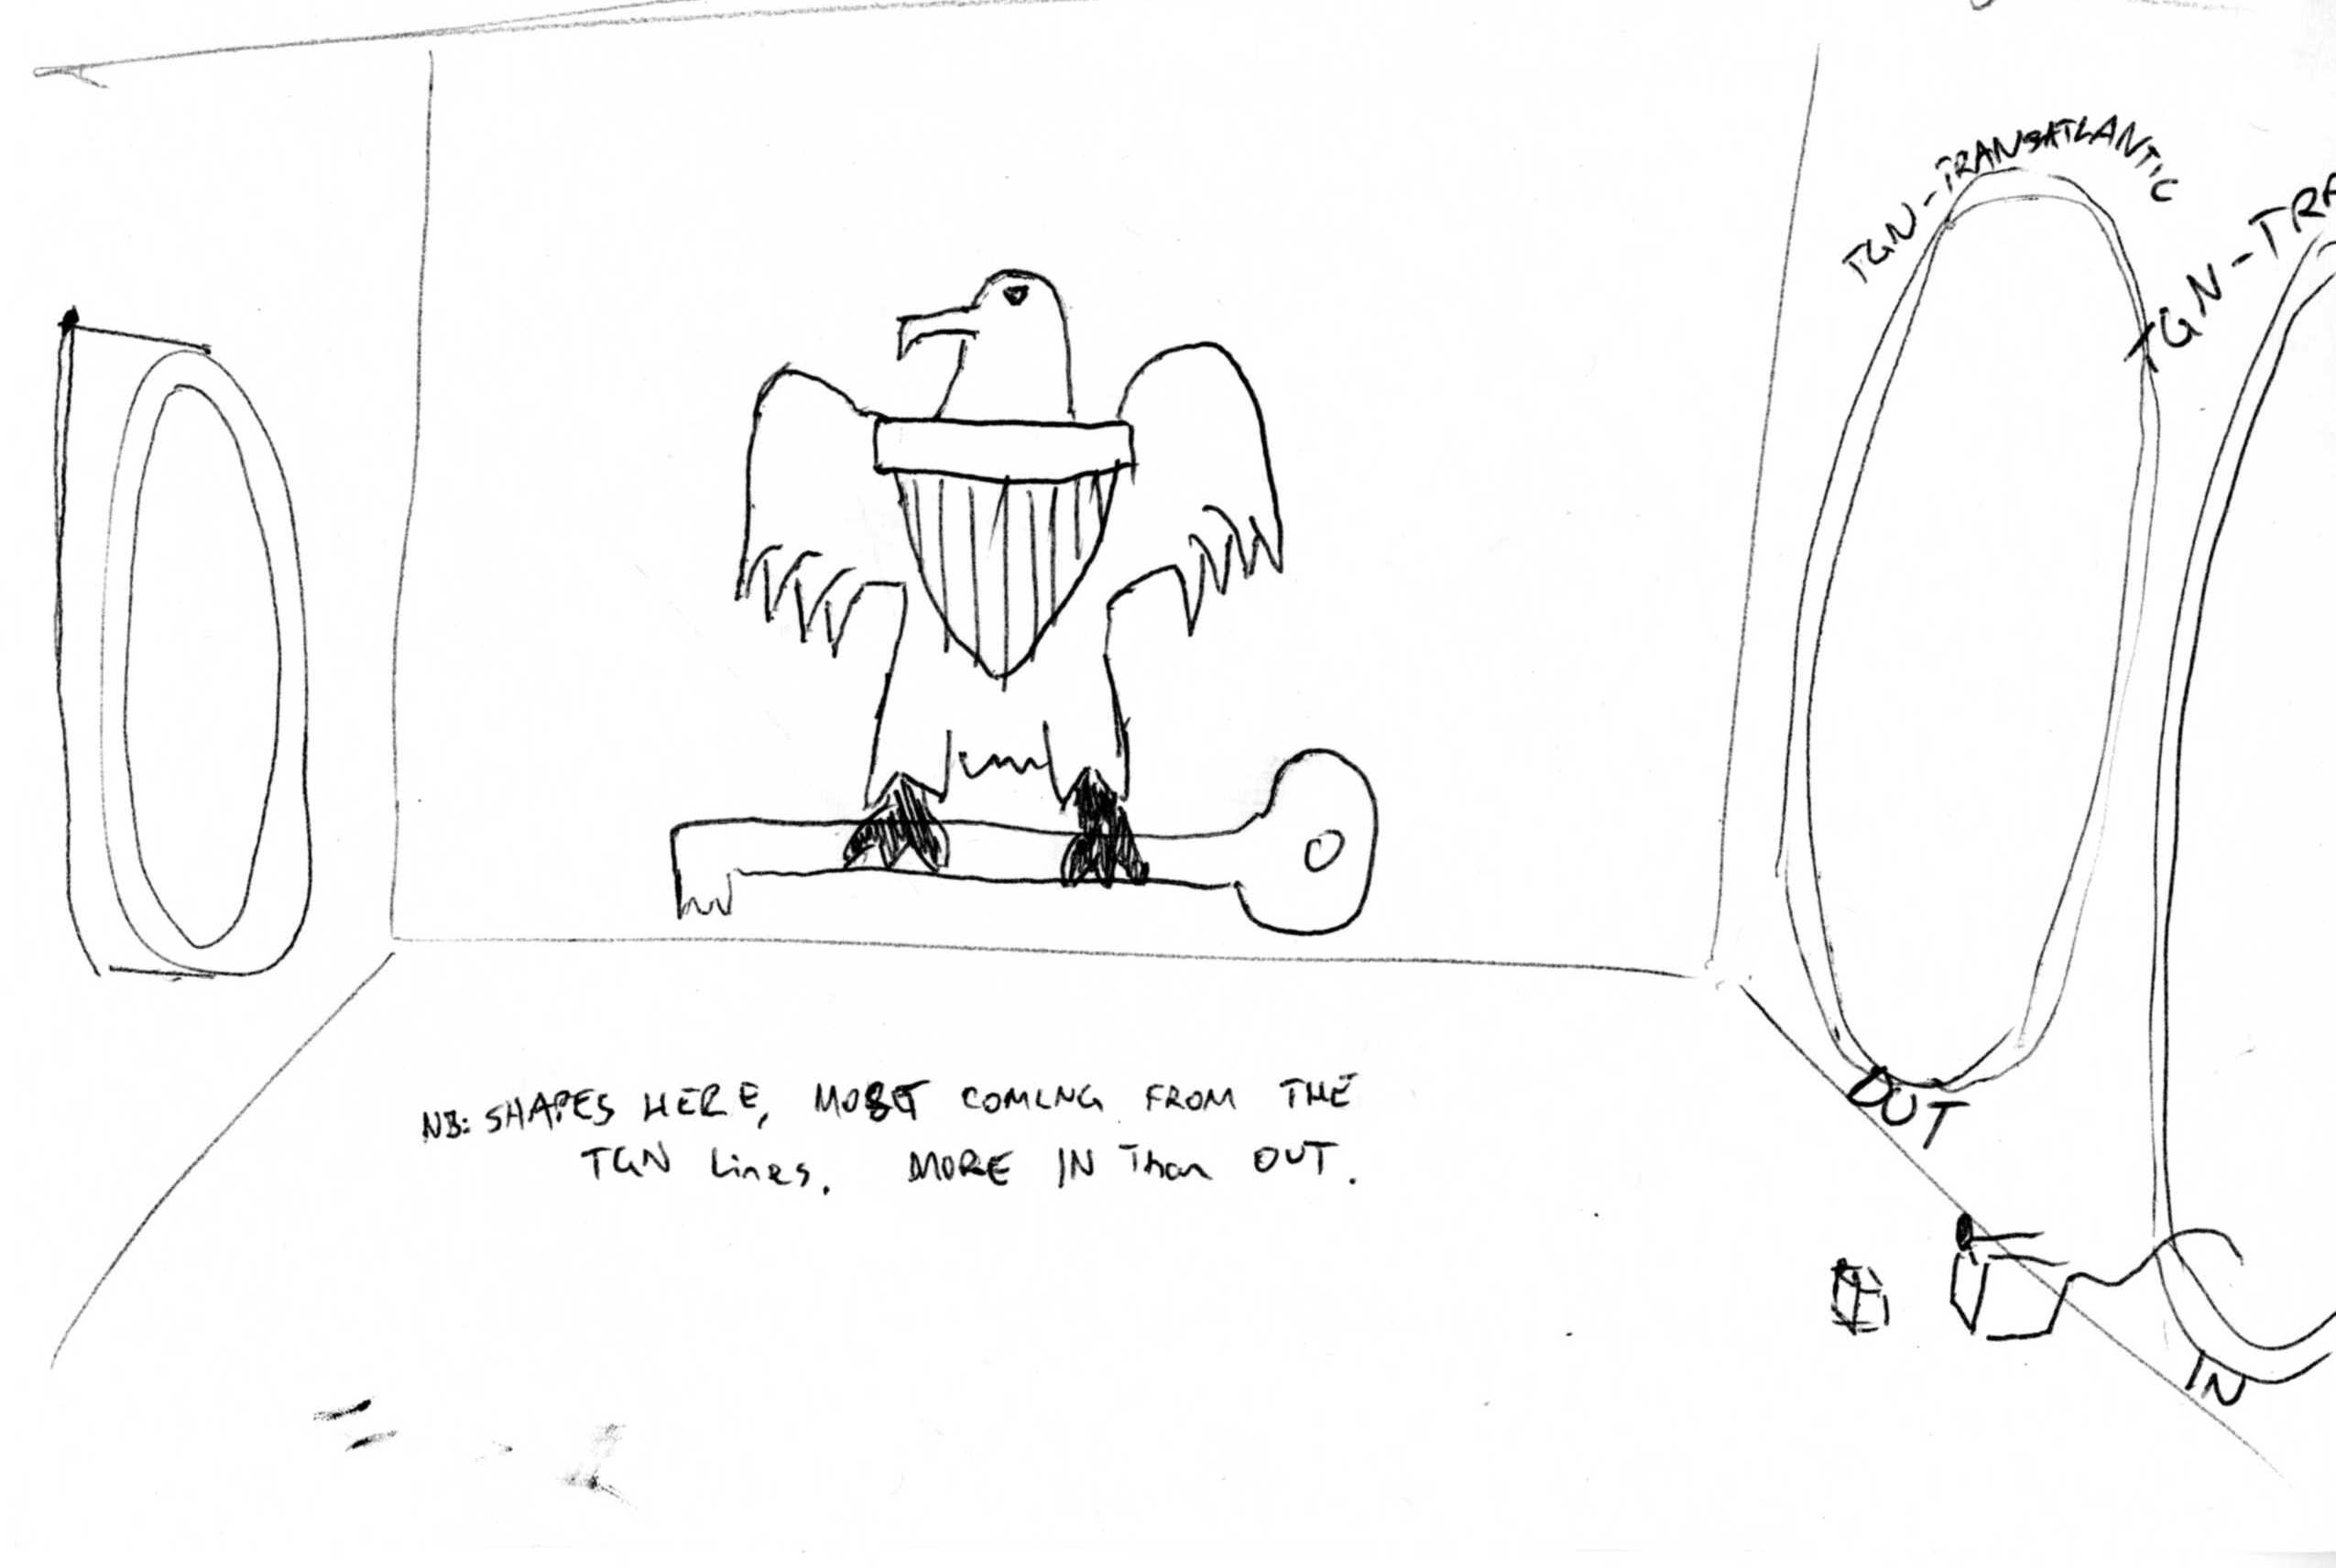 TGN-TRANSATLANTIC
TGN-TRA
NB: SHAPES HERE, MOST COMING FROM THE
TGN Lines. MORE IN Than OUT.
OUT
IN